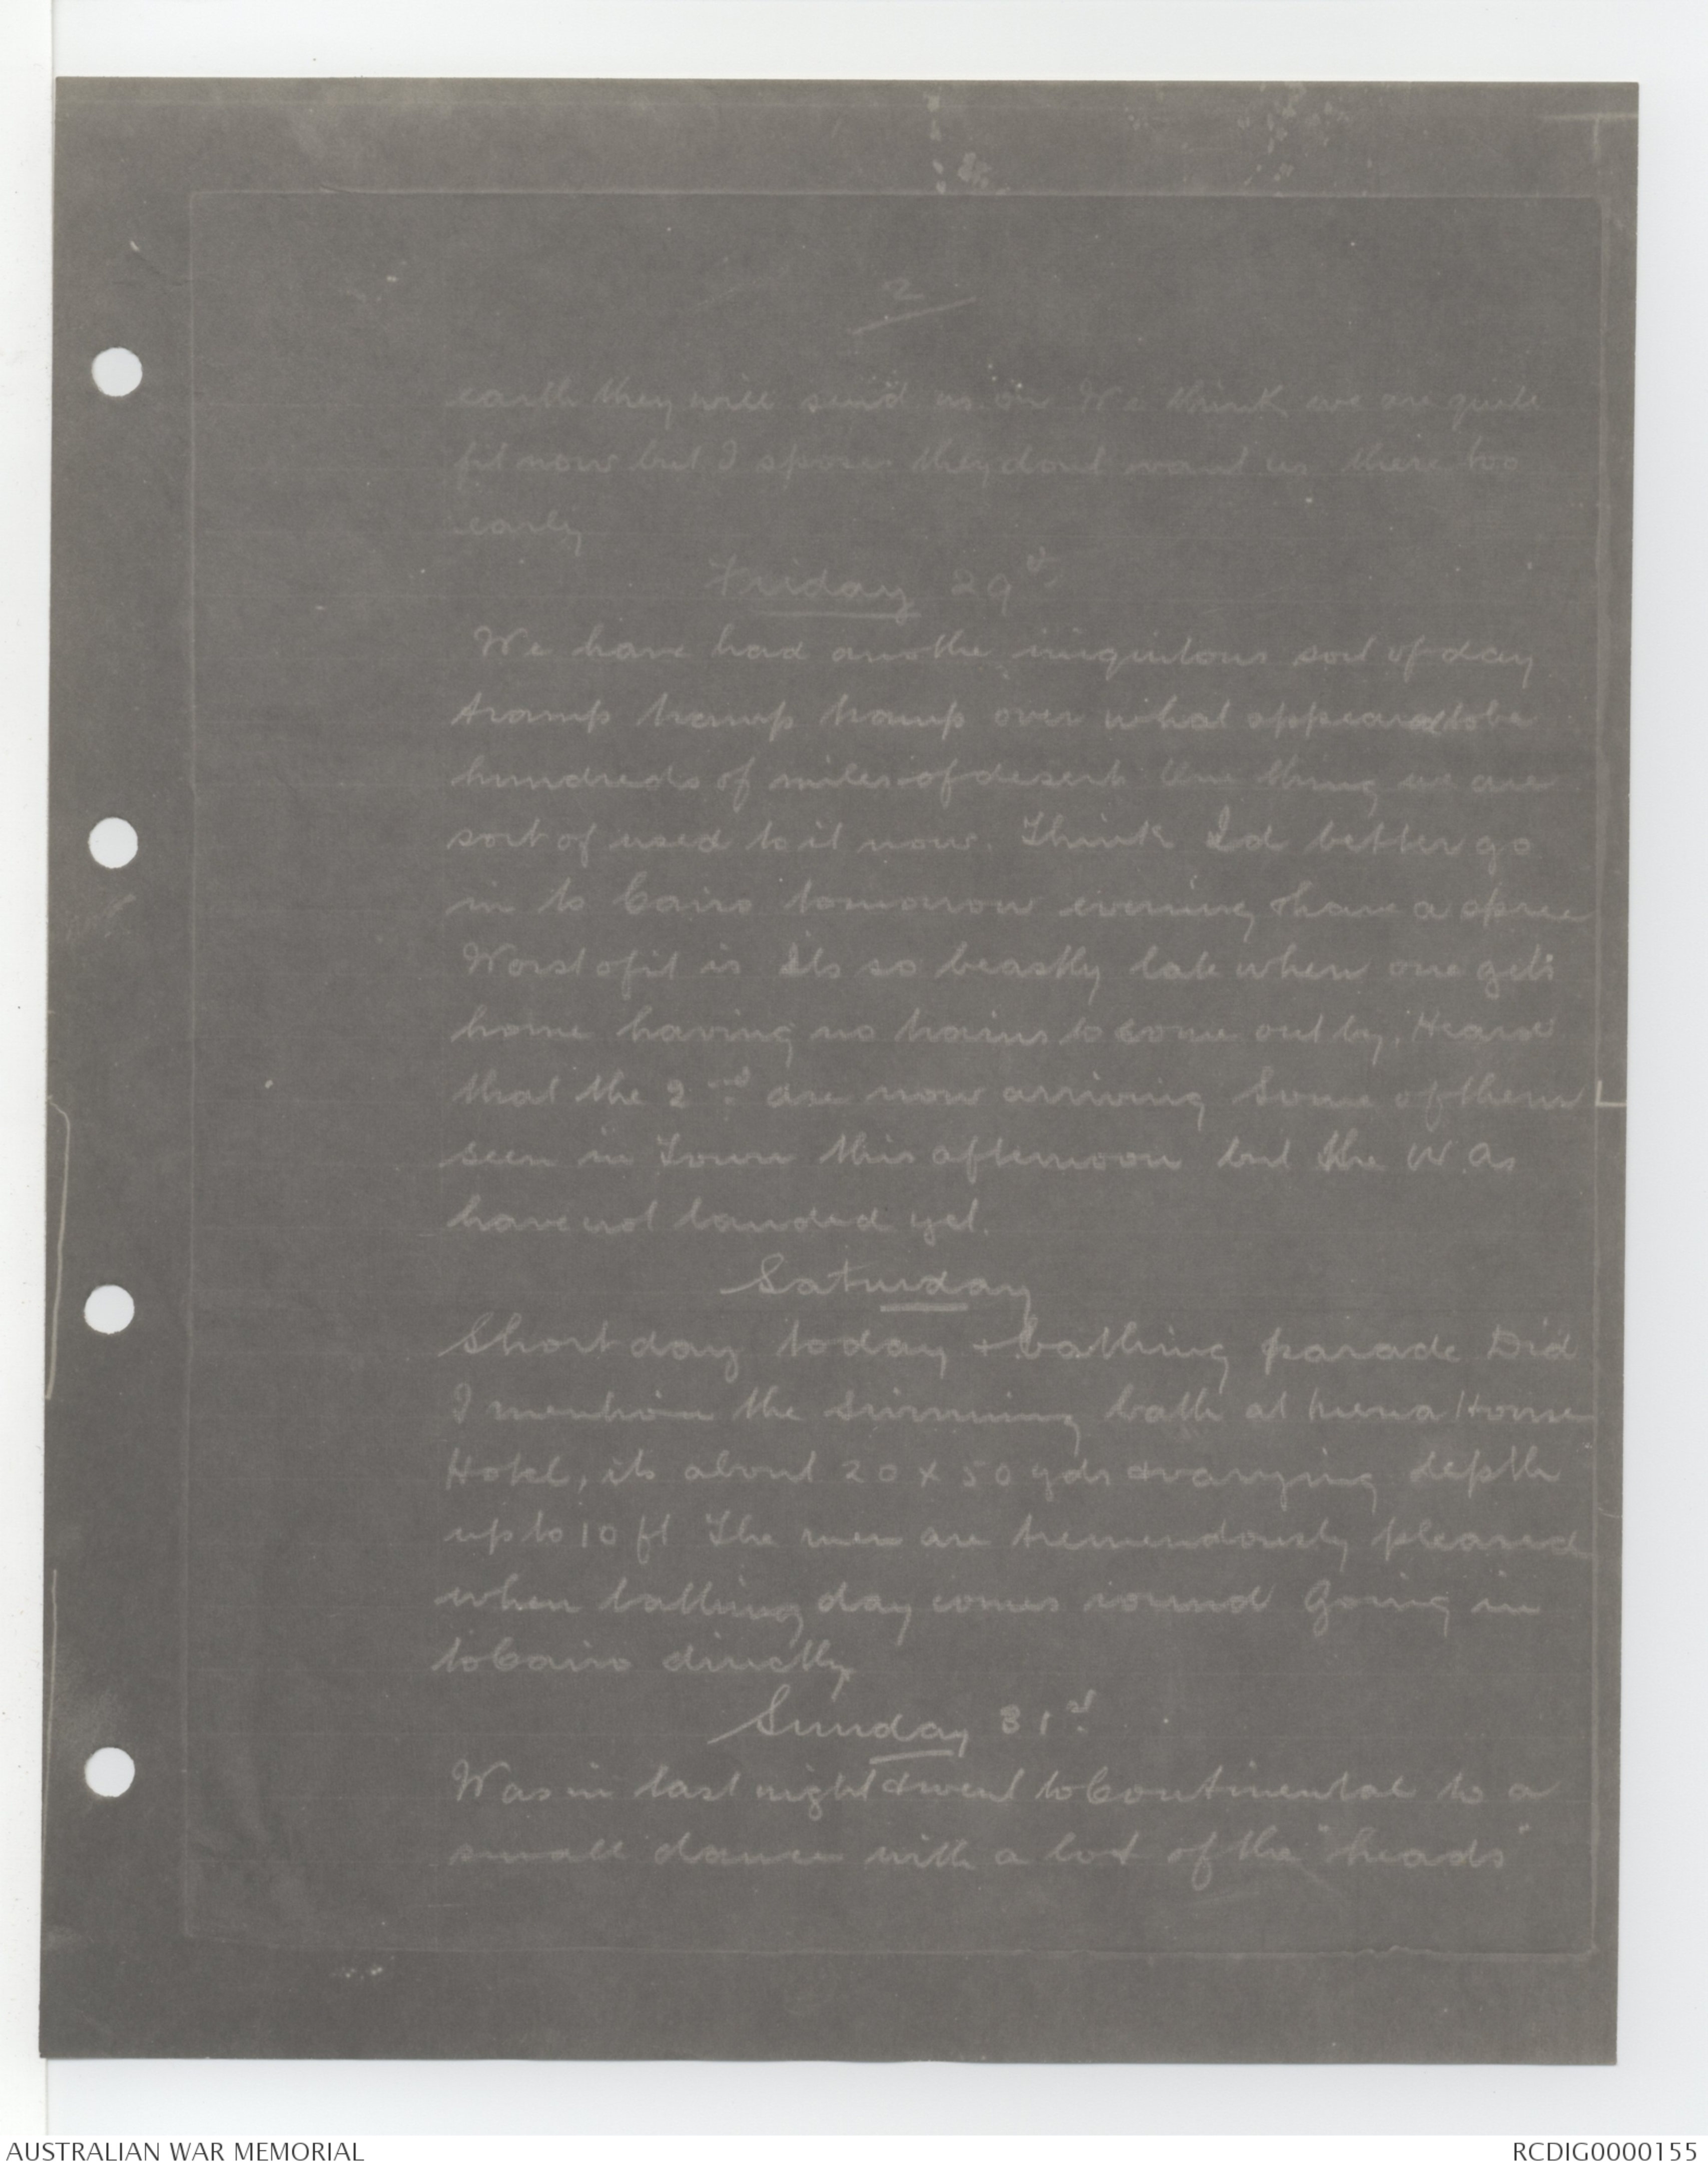 2
earth they will send us on We think we are quite
fit now but I spose they dont want us there too
early
Friday 29th
We have had anothe iniquitous sort of day
tramp tramp tramp over what appeared to be
hundreds of miles of desert One thing we are
sort of used to it now. Think I'd better go
in to Cairo tomorrow evening & have a spree
Worst of it is Its so beastly late when one gets
home having no trains to come out by. Heard
that the 2nd are now arriving Some of them
seen in Town this afternoon but the W. As
have not landed yet.
Saturday
Short day today & bathing parade Did
I mention the swimming bath at Mena House
Hotel, its about 20 x 50 yds & varying depth
up to 10 ft The men are tremendously pleased
when bathing day comes round Going in
to Cairo directly
Sunday 31st
Was in last night & went to Continental to a
small dance with a lot of the "heads"
AUSTRALIAN WAR MEMORIAL
RCDIG0000155